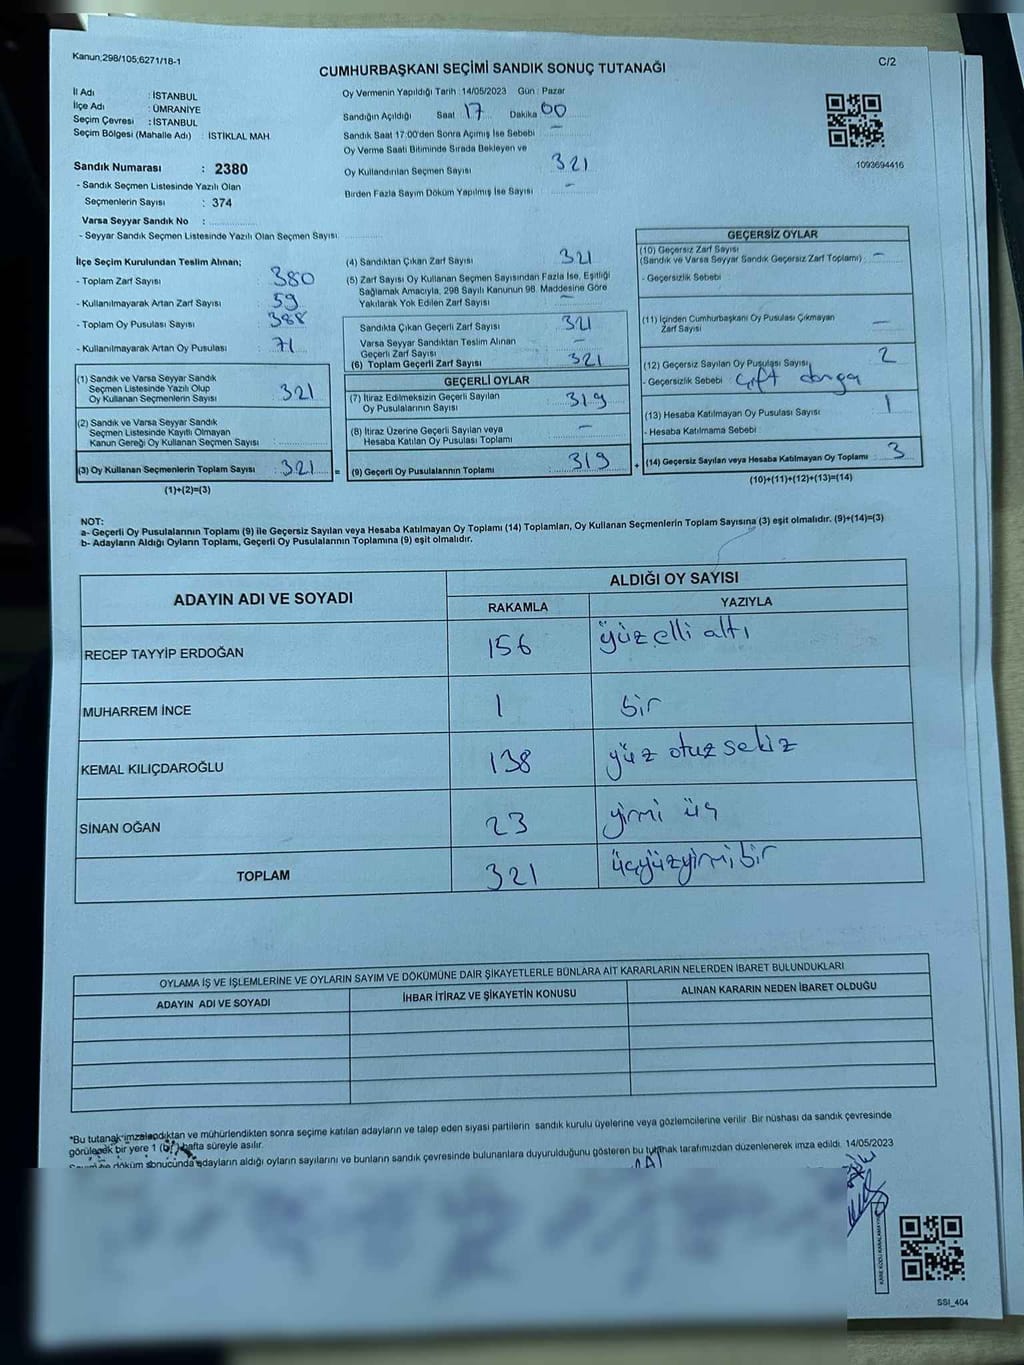 Kanun;298/105;6271/18-1
C/2
CUMHURBAŞKANI SEÇİMİ SANDIK SONUÇ TUTANAĞI
İl Adı : İSTANBUL
İlçe Adı : ÜMRANİYE
Seçim Çevresi : İSTANBUL
Seçim Bölgesi (Mahalle Adı) : İSTİKLAL MAH
Sandık Numarası : 2380
- Sandık Seçmen Listesinde Yazılı Olan
Seçmenlerin Sayısı : 374
Varsa Seyyar Sandık No :
- Seyyar Sandık Seçmen Listesinde Yazılı Olan Seçmen Sayısı:
Oy Vermenin Yapıldığı Tarih : 14/05/2023 Gün : Pazar
Sandığın Açıldığı Saat 17 Dakika 00
Sandık Saat 17:00'den Sonra Açımış İse Sebebi –
Oy Verme Saati Bitiminde Sırada Bekleyen ve
Oy Kullandırılan Seçmen Sayısı 321
Birden Fazla Sayım Döküm Yapılmış İse Sayısı –
1093694416
İlçe Seçim Kurulundan Teslim Alınan;
- Toplam Zarf Sayısı : 380
- Kullanılmayarak Artan Zarf Sayısı : 59
- Toplam Oy Pusulası Sayısı : 388
- Kullanılmayarak Artan Oy Pusulası : 71
(1) Sandık ve Varsa Seyyar Sandık
Seçmen Listesinde Yazılı Olup
Oy Kullanan Seçmenlerin Sayısı : 321
(2) Sandık ve Varsa Seyyar Sandık
Seçmen Listesinde Kayıtlı Olmayan
Kanun Gereği Oy Kullanan Seçmen Sayısı :
(3) Oy Kullanan Seçmenlerin Toplam Sayısı : 321 =
(1)+(2)=(3)
(4) Sandıktan Çıkan Zarf Sayısı : 321
(5) Zarf Sayısı Oy Kullanan Seçmen Sayısından Fazla İse, Eşitliği
Sağlamak Amacıyla, 298 Sayılı Kanunun 98. Maddesine Göre
Yakılarak Yok Edilen Zarf Sayısı : –
Sandıkta Çıkan Geçerli Zarf Sayısı : 321
Varsa Seyyar Sandıktan Teslim Alınan
Geçerli Zarf Sayısı : –
(6) Toplam Geçerli Zarf Sayısı : 321
GEÇERLİ OYLAR
(7) İtiraz Edilmeksizin Geçerli Sayılan
Oy Pusulalarının Sayısı : 319
(8) İtiraz Üzerine Geçerli Sayılan veya
Hesaba Katılan Oy Pusulası Toplamı : –
(9) Geçerli Oy Pusulalarının Toplamı : 319 +
GEÇERSİZ OYLAR
(10) Geçersiz Zarf Sayısı
(Sandık ve Varsa Seyyar Sandık Geçersiz Zarf Toplamı) : –
- Geçersizlik Sebebi :
(11) İçinden Cumhurbaşkanı Oy Pusulası Çıkmayan
Zarf Sayısı : –
(12) Geçersiz Sayılan Oy Pusulası Sayısı : 2
- Geçersizlik Sebebi : çift damga
(13) Hesaba Katılmayan Oy Pusulası Sayısı : 1
- Hesaba Katılmama Sebebi :
(14) Geçersiz Sayılan veya Hesaba Katılmayan Oy Toplamı : 3
(10)+(11)+(12)+(13)=(14)
NOT:
a- Geçerli Oy Pusulalarının Toplamı (9) ile Geçersiz Sayılan veya Hesaba Katılmayan Oy Toplamı (14) Toplamları, Oy Kullanan Seçmenlerin Toplam Sayısına (3) eşit olmalıdır. (9)+(14)=(3)
b- Adayların Aldığı Oyların Toplamı, Geçerli Oy Pusulalarının Toplamına (9) eşit olmalıdır.
ADAYIN ADI VE SOYADI
ALDIĞI OY SAYISI
RAKAMLA YAZIYLA
RECEP TAYYİP ERDOĞAN 156 yüz elli altı
MUHARREM İNCE 1 bir
KEMAL KILIÇDAROĞLU 138 yüz otuz sekiz
SİNAN OĞAN 23 yirmi üç
TOPLAM 321 üçyüzyirmi bir
OYLAMA İŞ VE İŞLEMLERİNE VE OYLARIN SAYIM VE DÖKÜMÜNE DAİR ŞİKAYETLERLE BUNLARA AİT KARARLARIN NELERDEN İBARET BULUNDUKLARI
ADAYIN ADI VE SOYADI İHBAR İTİRAZ VE ŞİKAYETİN KONUSU ALINAN KARARIN NEDEN İBARET OLDUĞU
*Bu tutanak imzalandıktan ve mühürlendikten sonra seçime katılan adayların ve talep eden siyasi partilerin sandık kurulu üyelerine veya gözlemcilerine verilir. Bir nüshası da sandık çevresinde
görülecek bir yere 1 (bir) hafta süreyle asılır.
döküm sonucunda adayların aldığı oyların sayılarını ve bunların sandık çevresinde bulunanlara duyurulduğunu gösteren bu tutanak tarafımızdan düzenlenerek imza edildi. 14/05/2023
SSI_404